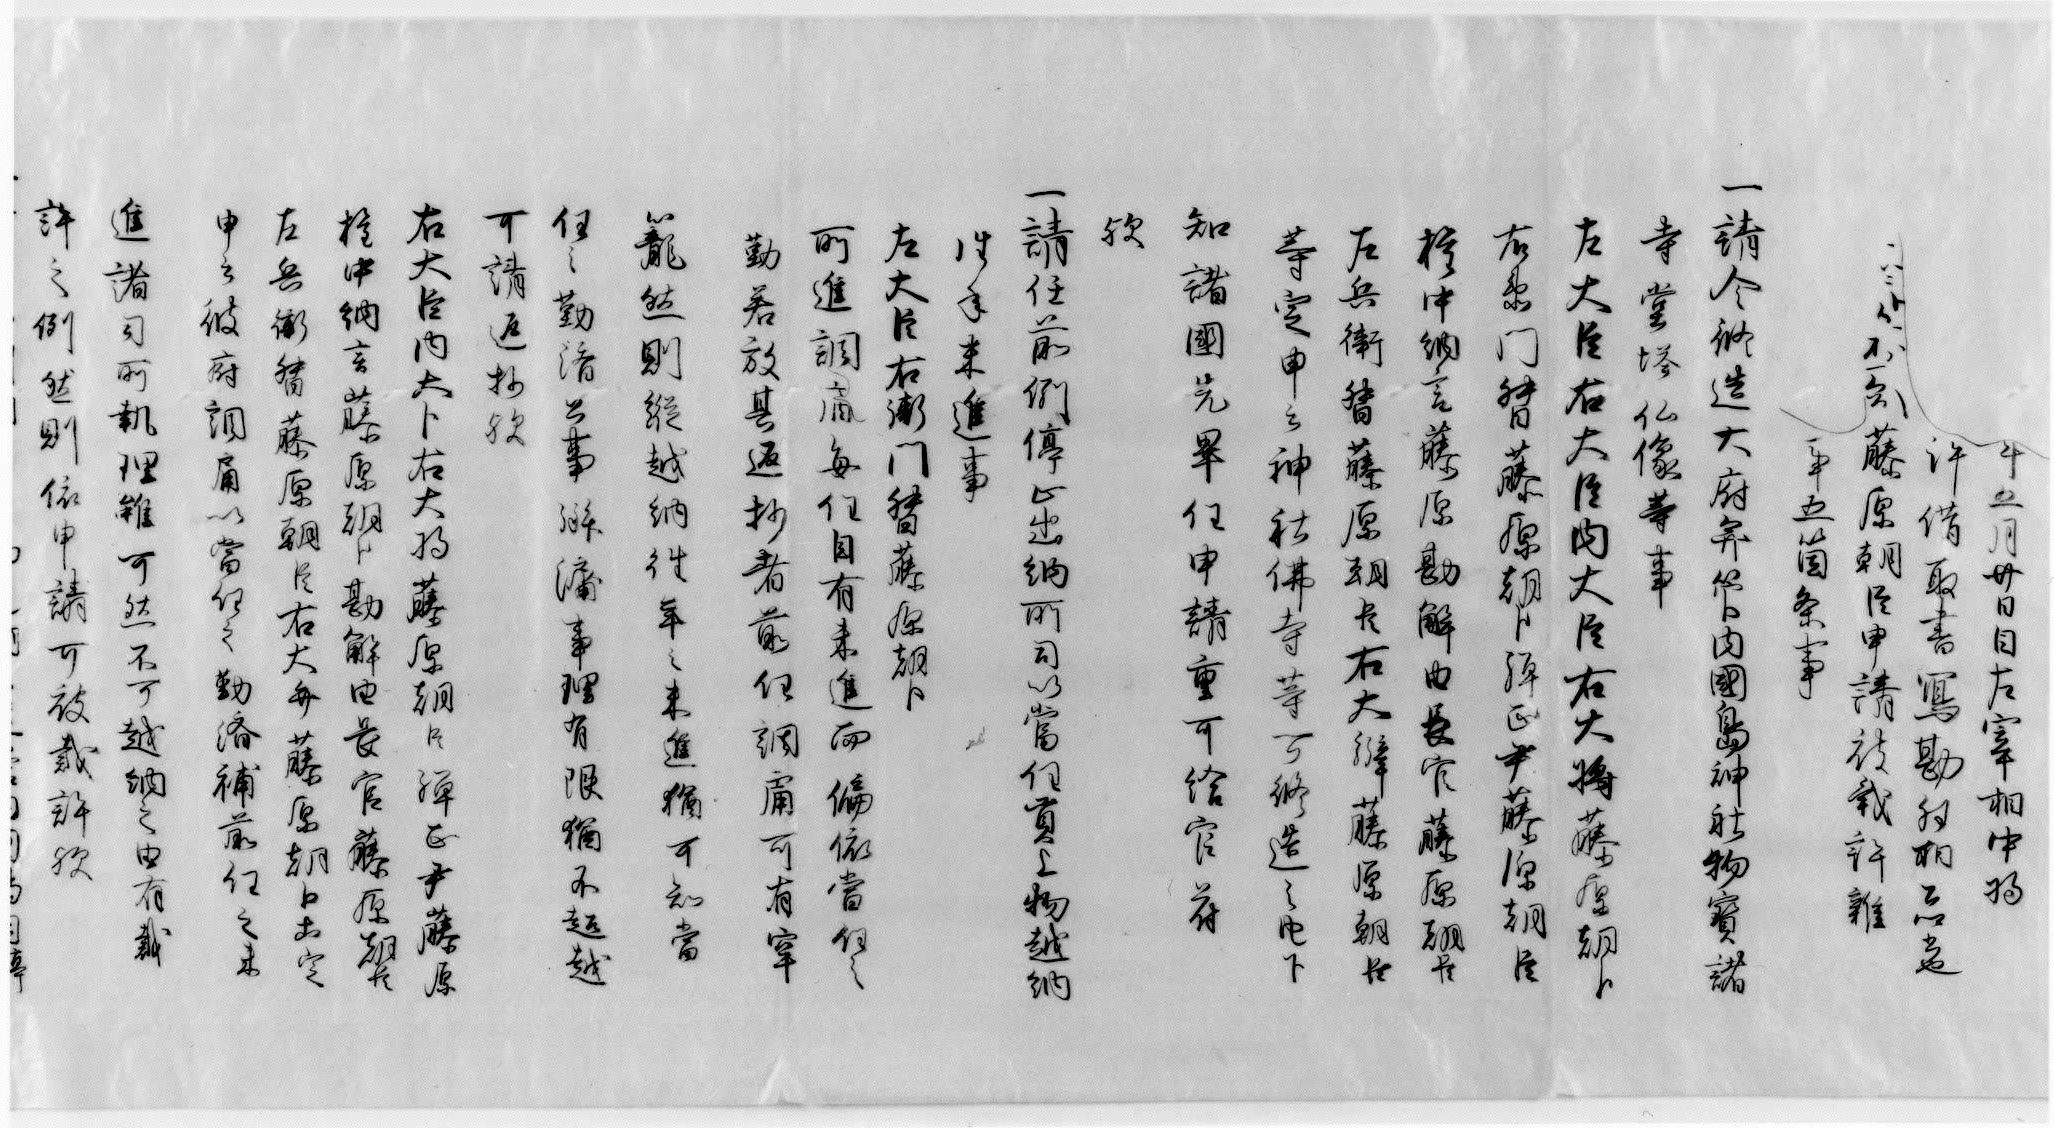 年五月廿日自左宰相中将
許借取書写勘付相品者也
藤原朝臣申請被裁許雑
事五箇条事
一請令修造大府并管内国島神社物宝諸
寺堂塔仏像等事
左大臣右大臣内大臣右大将藤原朝臣
右衛門督藤原朝臣弾正尹藤原朝臣
権中納言藤原勘解由長官藤原朝臣
左兵衛督藤原朝臣右大弁藤原朝臣
等定申云神社仏寺等可修造之由下
知諸国先畢任申請重可給官符
歟
一請任前例停止出納所司以当任貢上物越納
往年未進事
左大臣右衛門督藤原朝臣
所進調庸毎任自有未進而偏依当任之
勤若放其返抄者前任調庸可有牢
籠然則縦越納往年之未進猶可知当
任之勤済公事雖済事理有限猶不超越
可請返抄歟
右大臣内大臣右大将藤原朝臣弾正尹藤原
権中納言藤原朝臣勘解由長官藤原朝臣
左兵衛督藤原朝臣右大弁藤原朝臣等定
申云彼府調庸以当任之勤済補前任之未
進諸司所執理雖可然不可越納之由有裁
許之例然則依申請可被裁許歟